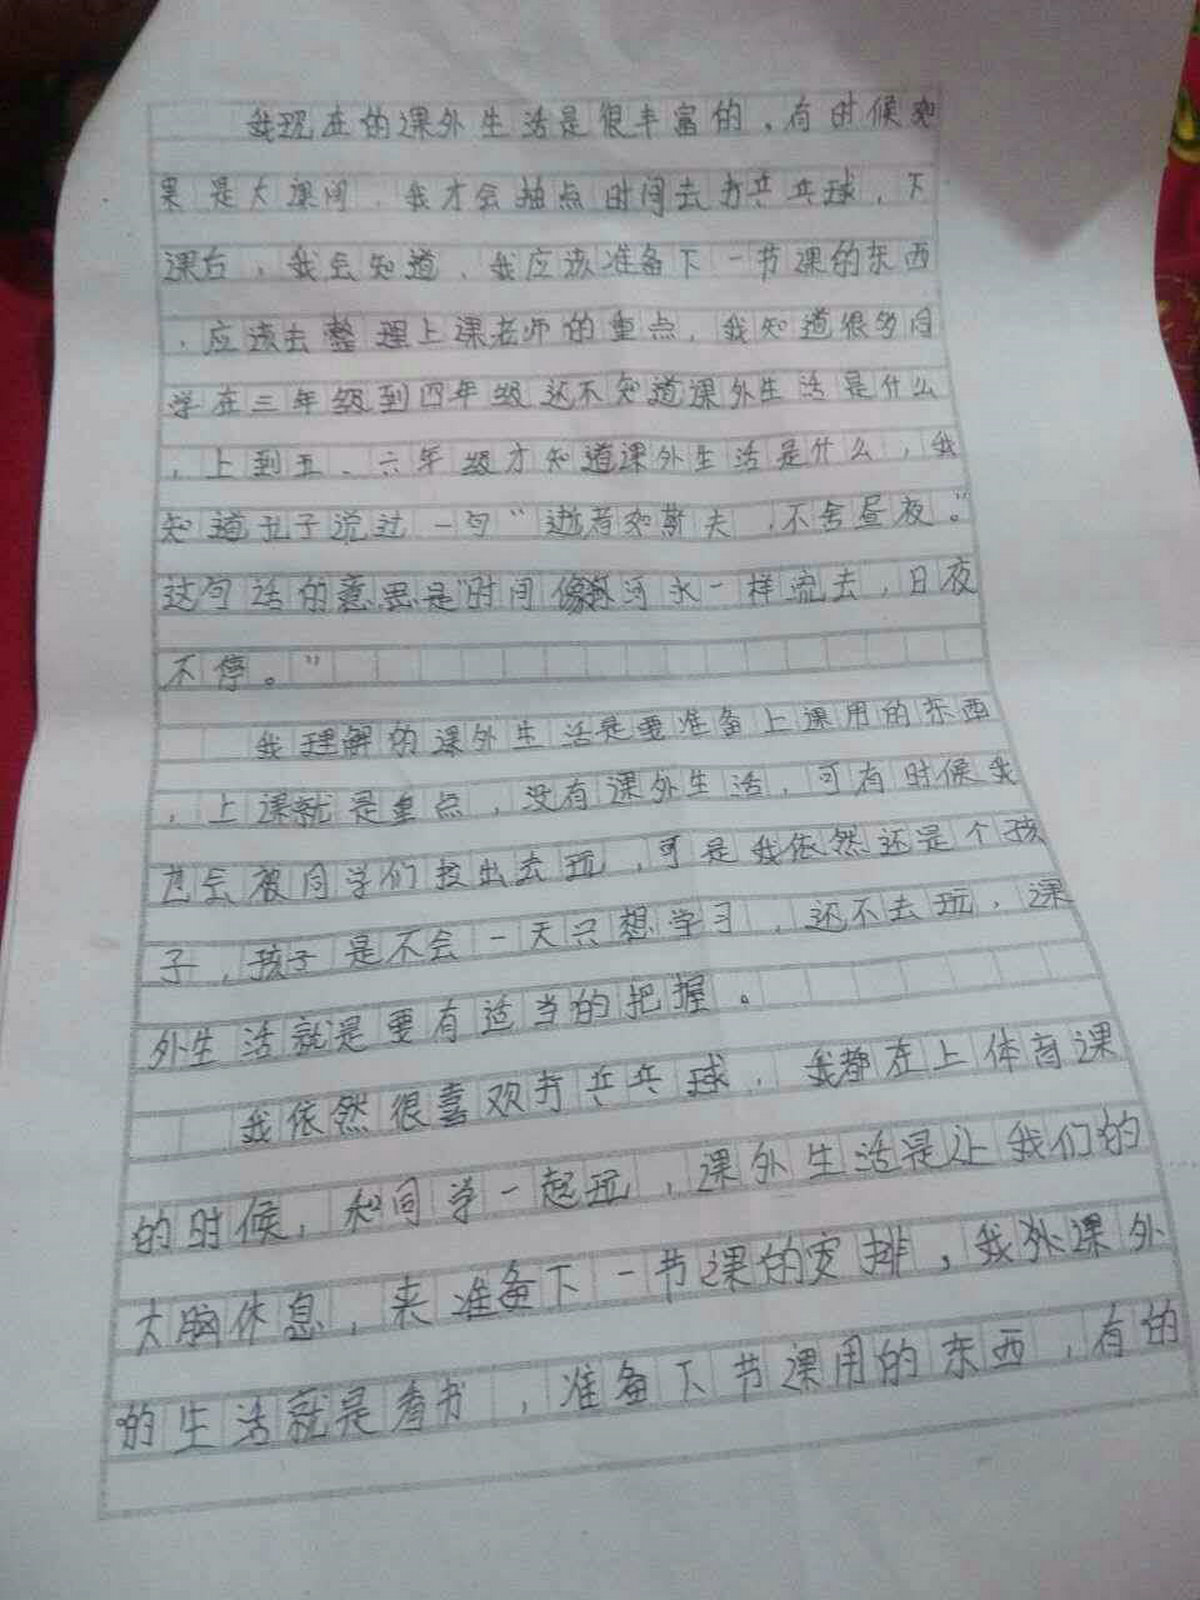 我现在的课外生活是很丰富的，有时候如
果是大课间，我才会抽点时间去打乒乓球，下
课后，我会知道，我应该准备下一节课的东西
，应该去整理上课老师的重点，我知道很多同
学在三年级到四年级还不知道课外生活是什么
，上到五、六年级才知道课外生活是什么，我
知道孔子说过一句“逝者如斯夫，不舍昼夜。”
这句话的意思是“时间像河水一样流去，日夜
不停。”
我理解的课外生活是要准备上课用的东西
，上课就是重点，没有课外生活，可有时候我
也会被同学们拉出去玩，可是我依然还是个孩
子，孩子是不会一天只想学习，还不去玩，课
外生活就是要有适当的把握。
我依然很喜欢打乒乓球，我都在上体育课
的时候，和同学一起玩，课外生活是让我们的
大脑休息，来准备下一节课的安排，我外课外
的生活就是看书，准备下节课用的东西，有的